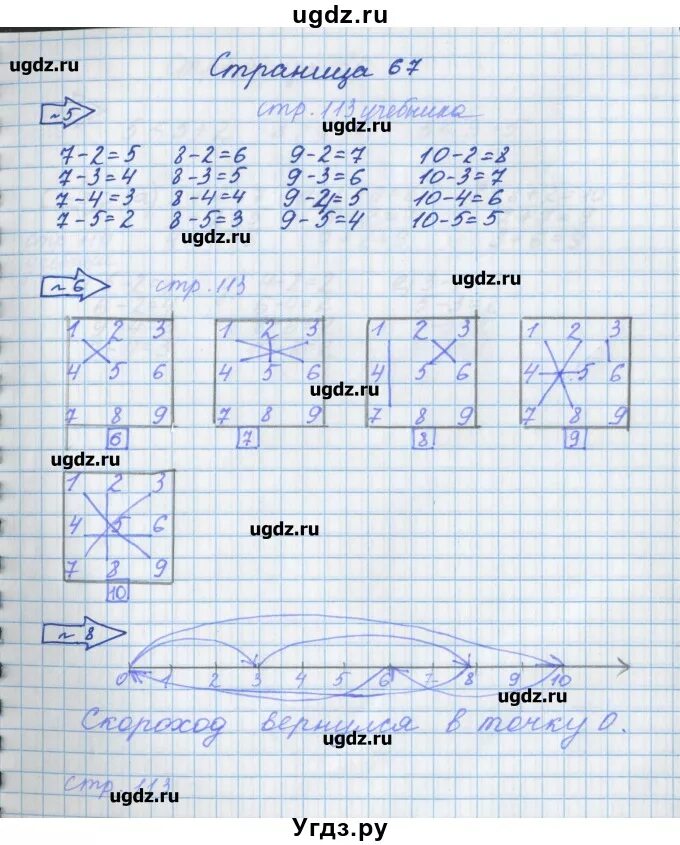 ugdz.ru
ugdz.ru
Страница 67
~5
стр. 113 учебника
ugdz.ru
7-2=5 8-2=6 9-2=7 10-2=8
7-3=4 8-3=5 9-3=6 10-3=7
7-4=3 8-4=4 9-4=5 10-4=6
7-5=2 8-5=3 9-5=4 10-5=5
ugdz.ru
~6 стр. 113
ugdz.ru
1 2 3 1 2 3 1 2 3 1 2 3
4 5 6 4 5 6 4 5 6 4 5 6
ugdz.ru
7 8 9 7 8 9 7 8 9 7 8 9
6 7 8 9
ugdz.ru
1 2 3
4 5 6
ugdz.ru
7 8 9
10
~8
0 1 2 3 4 5 6 7 8 9 10
ugdz.ru
Скороход вернулся в точку 0.
ugdz.ru
стр. 113
ugdz.ru
Угдз.ру